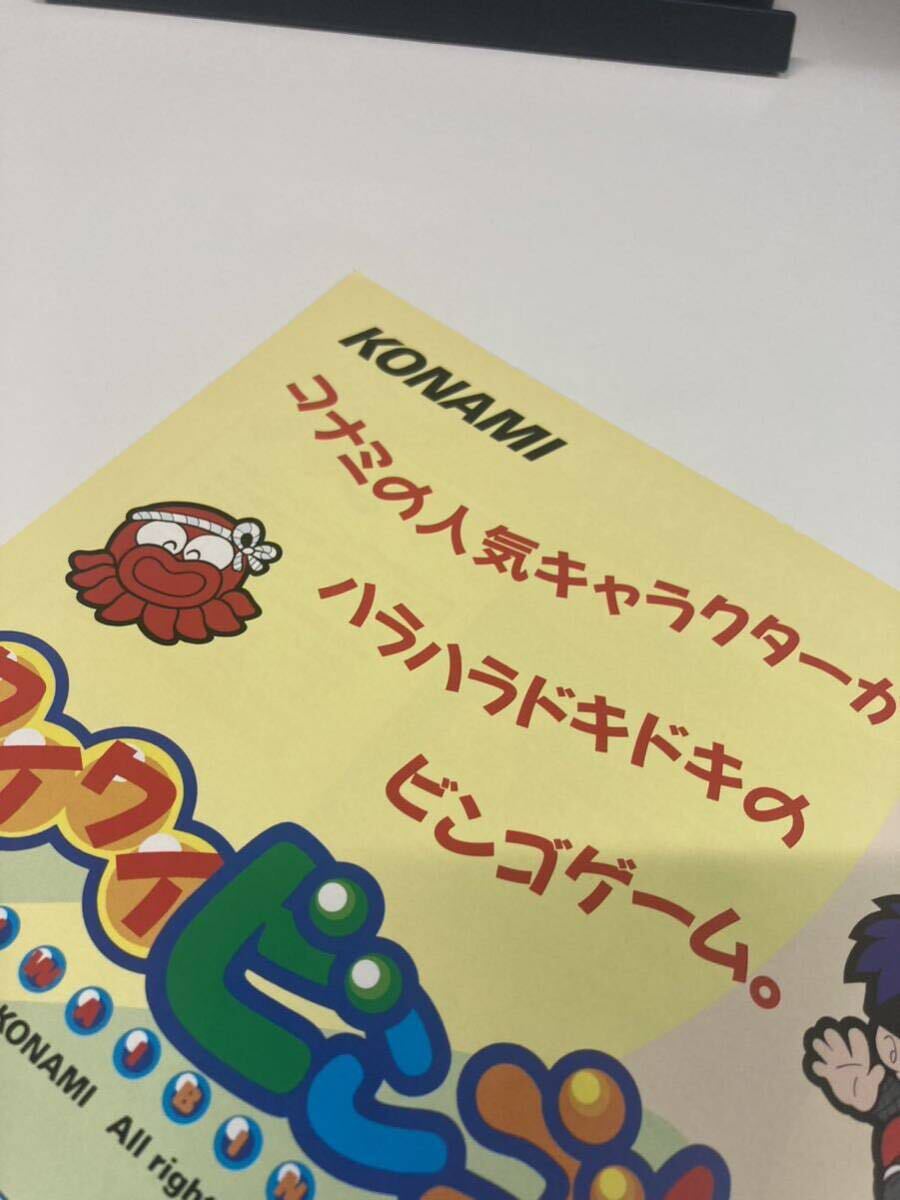 KONAMI
コナミの人気キャラクターが
ハラハラドキドキの
ビンゴゲーム。
ワイワイ
ビンゴ
WAIBIN
KONAMI All righ